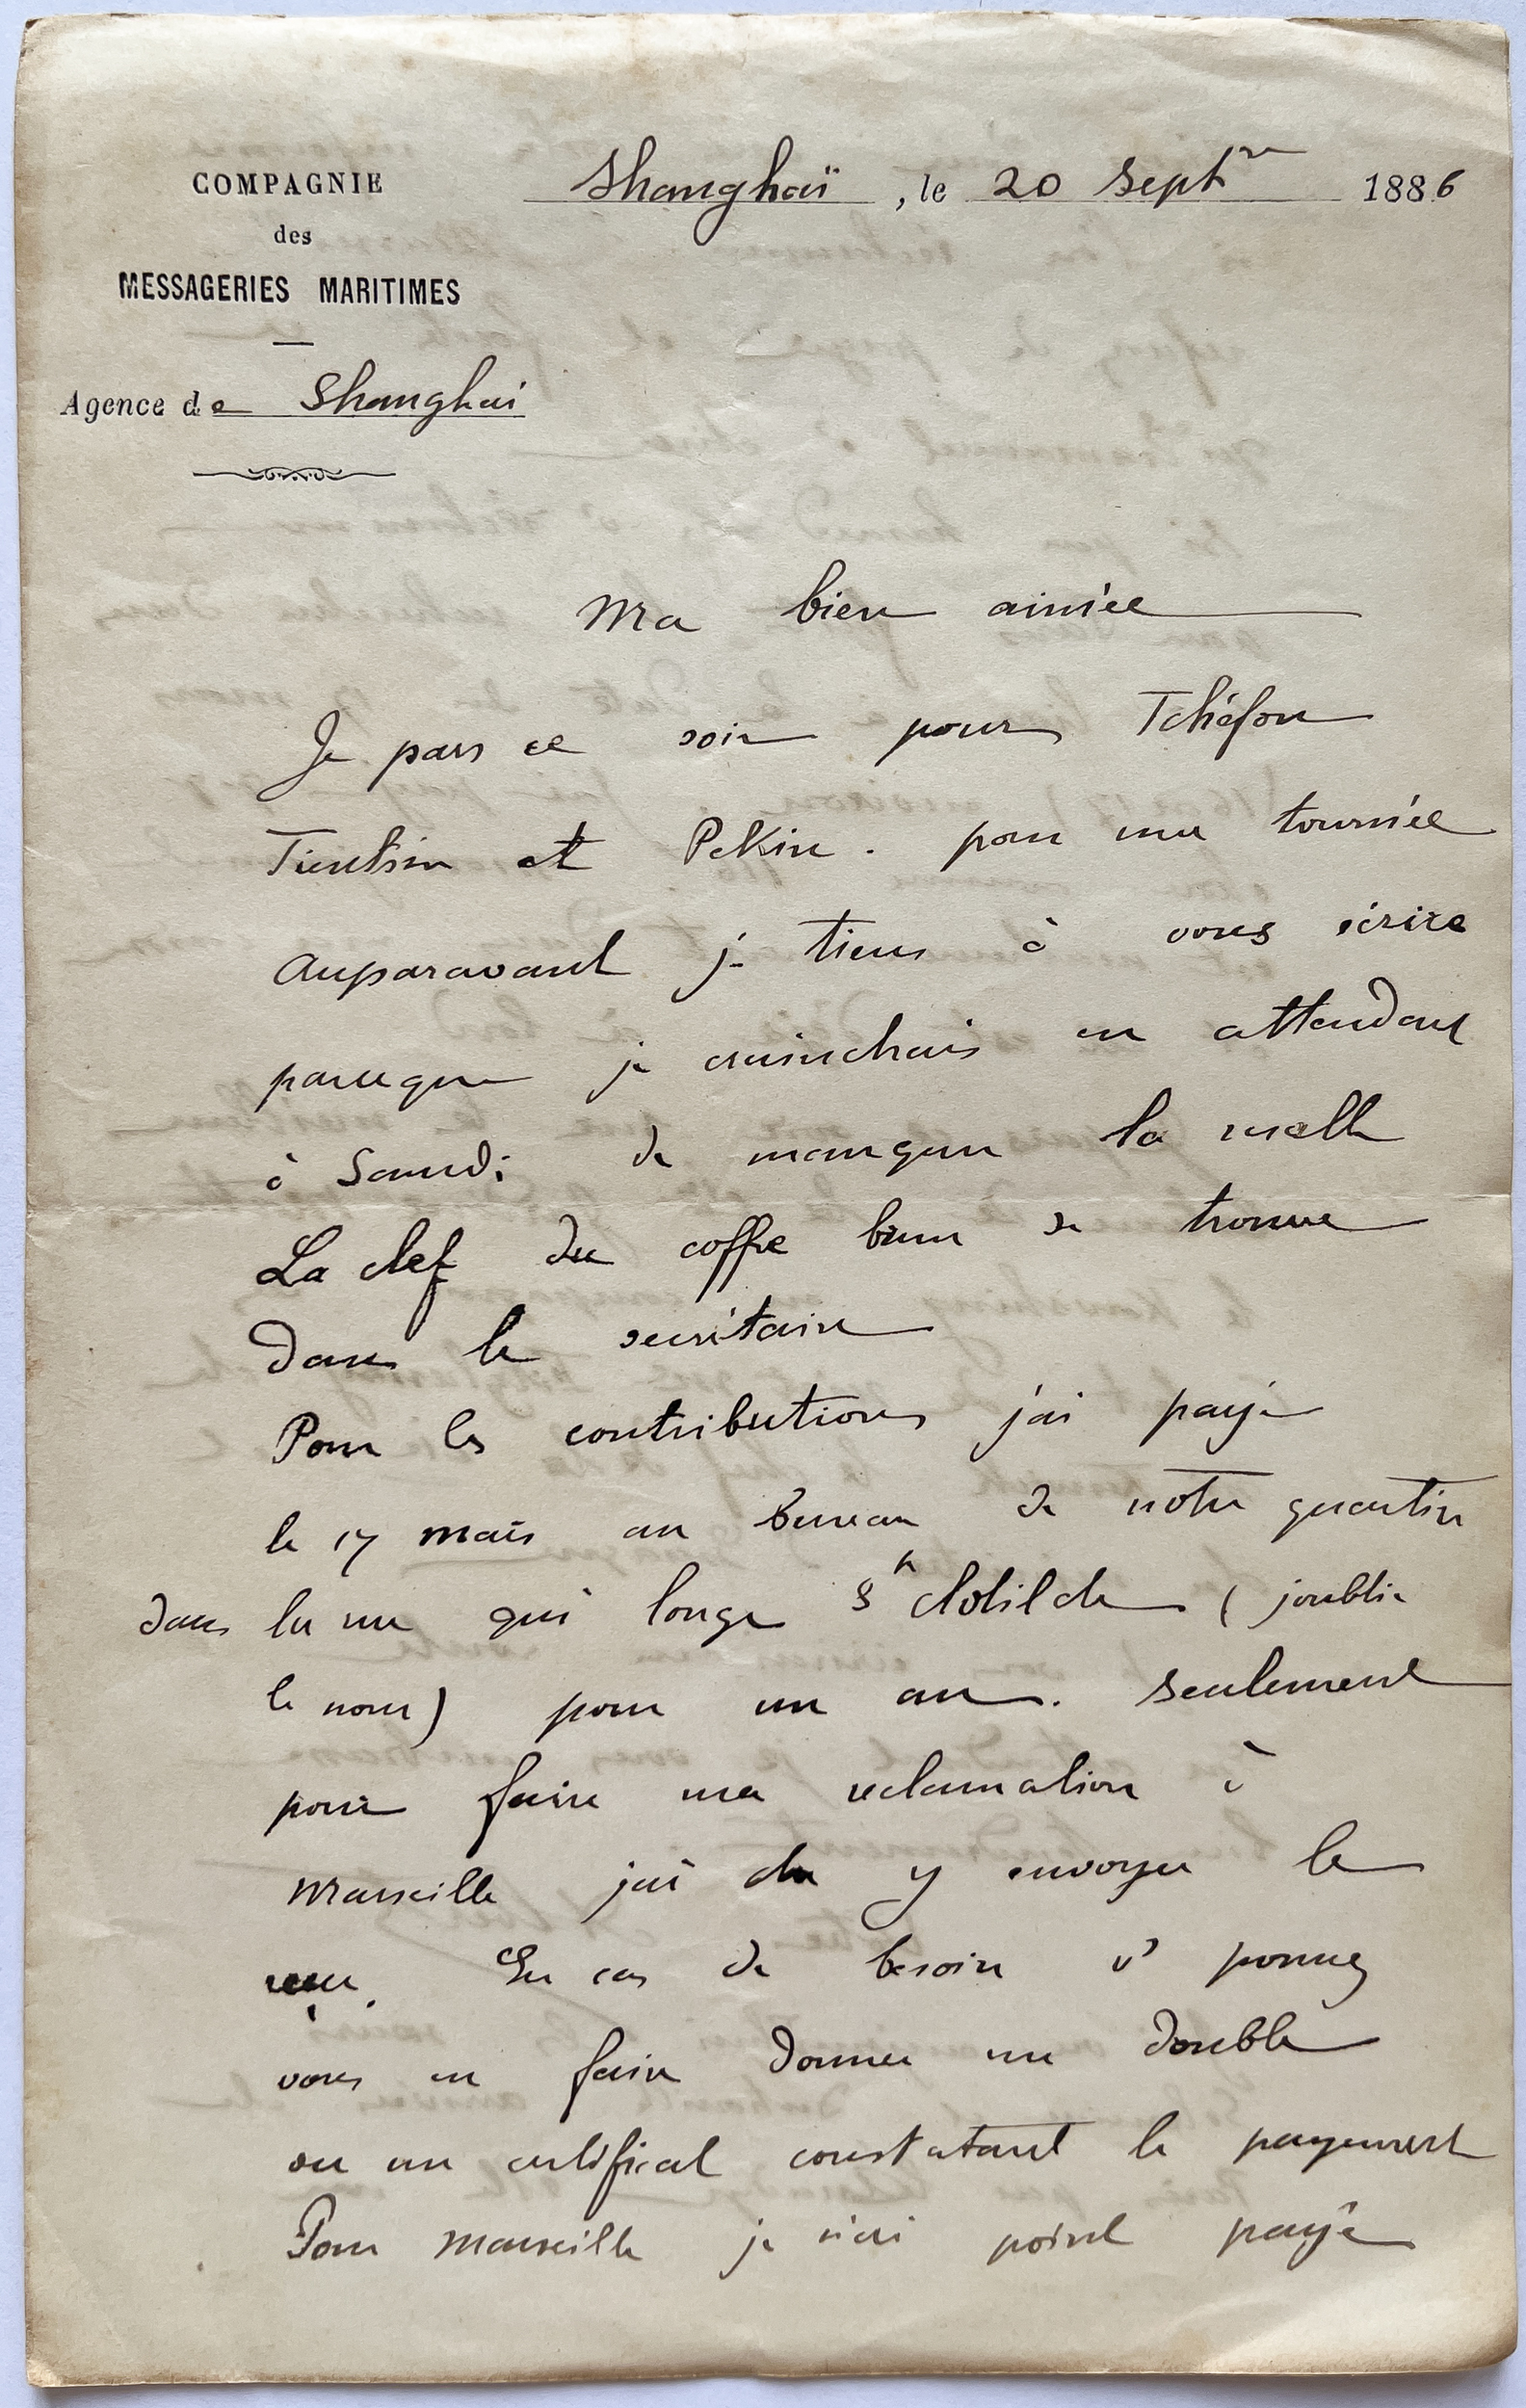 COMPAGNIE
des
MESSAGERIES MARITIMES
Agence de Shanghai
Shanghaï, le 20 Septre 1886
Ma bien aimée
Je pars ce soir pour Tchéfou
Tientsin et Pekin. pour ma tournée
Auparavant je tiens à vous écrire
parceque je craindrais en attendant
à Samedi de manquer la malle
La clef du coffre brun se trouve
dans le secrétaire
Pour les contributions j'ai payé
le 17 mars au bureau de notre quartier
dans la rue qui longe Ste Clotilde (joublie
le nom) pour un an. Seulement
pour faire ma reclamation à
Marseille jai du y envoyer le
reçu. En cas de besoin v' pouvez
vous en faire donner un double
ou un certificat constatant le payement
Pour Marseille je n'ai point payé